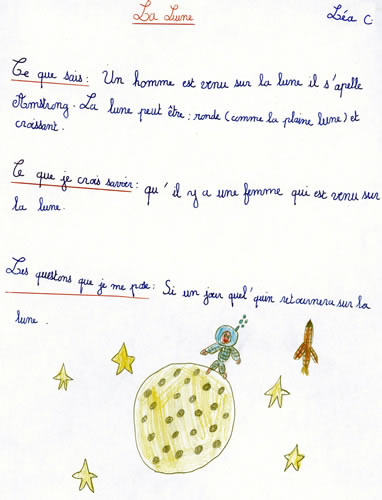 La Lune
Léa C.
Ce que sais : Un homme est venu sur la lune il s'apelle
Amstrong. La lune peut être : ronde (comme la plaine lune) et
croissant.
Ce que je crois savoir : qu'il y a une femme qui est venu sur
la lune.
Les questons que je me pose : Si un jour quel'quin retournera sur la
lune.